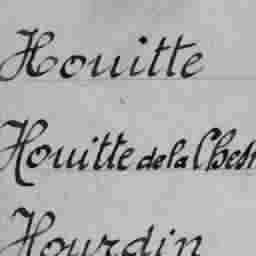 Houitte
Houitte de la Ches
Hourdin